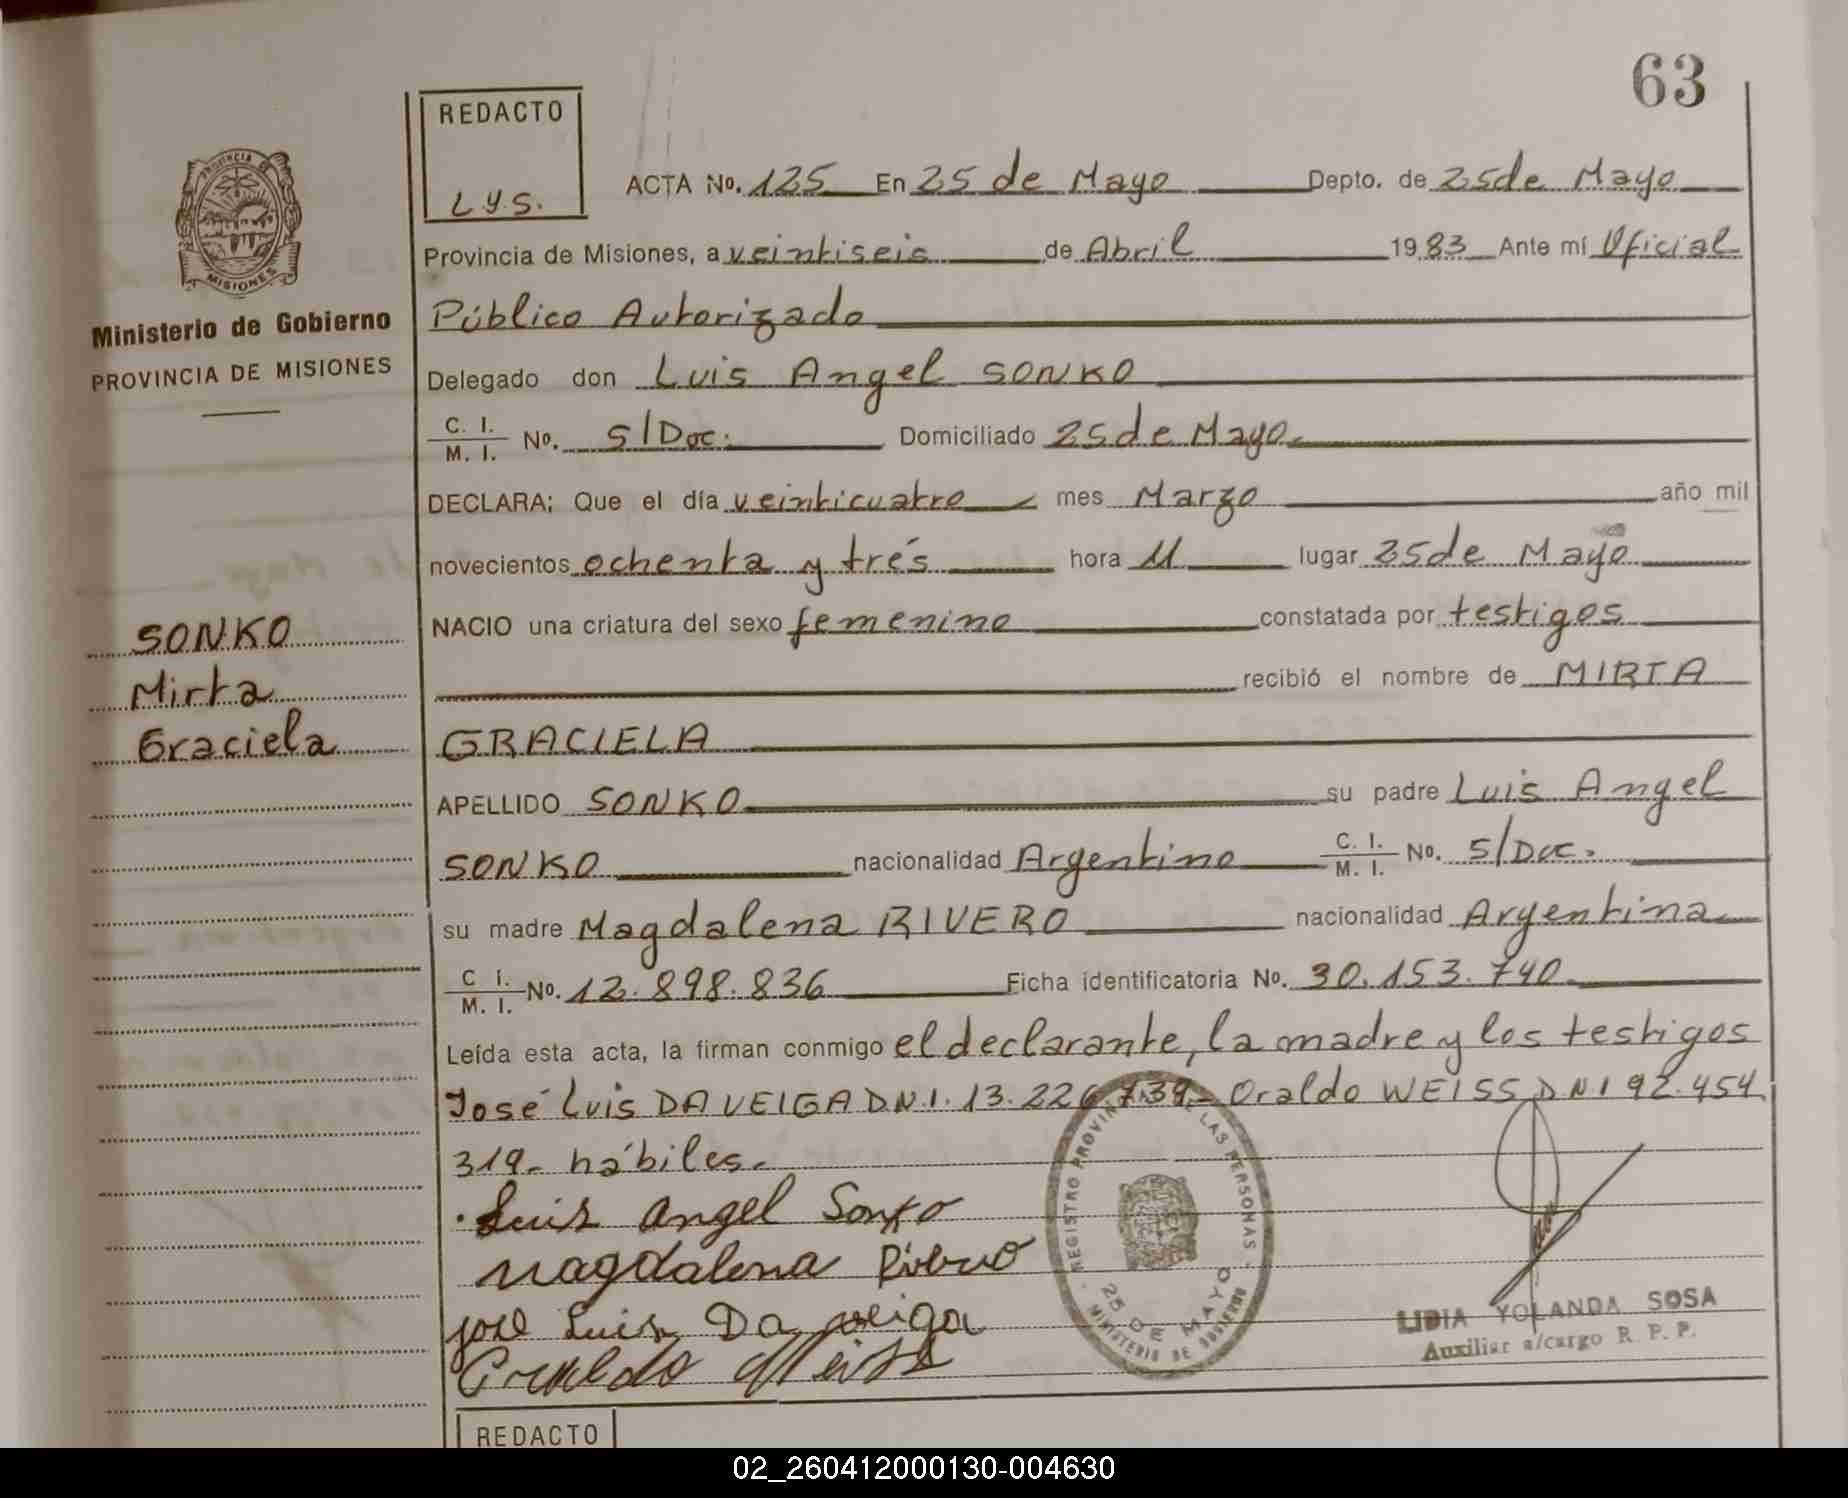 63
REDACTO
L.Y.S.
PROVINCIA DE
MISIONES
Ministerio de Gobierno
PROVINCIA DE MISIONES
ACTA No. 125 En 25 de Mayo Depto. de 25 de Mayo
Provincia de Misiones, a veintiseis de Abril 1983 Ante mí Oficial
Público Autorizado
Delegado don Luis Angel SONKO
C. I. / M. I. No. S/Doc. Domiciliado 25 de Mayo.
DECLARA; Que el día veinticuatro mes Marzo año mil
novecientos ochenta y trés hora 11 lugar 25 de Mayo
SONKO
Mirta
Graciela
NACIO una criatura del sexo femenino constatada por testigos
recibió el nombre de MIRTA
GRACIELA
APELLIDO SONKO su padre Luis Angel
SONKO nacionalidad Argentino C. I. / M. I. No. S/Doc.
su madre Magdalena RIVERO nacionalidad Argentina
C I. / M. I. No. 12.898.836 Ficha identificatoria No. 30.153.740
Leída esta acta, la firman conmigo el declarante, la madre y los testigos
José Luis DA VEIGA D.N.I. 13.226.739- Oraldo WEISS D N I 92.454.
319- hábiles.
Luis Angel Sonko
Magdalena Ribero
jose Luis Da veiga
Oraldo Weiss
REGISTRO PROVINCIAL DE LAS PERSONAS
25 DE MAYO
MINISTERIO DE GOBIERNO
LIDIA YOLANDA SOSA
Auxiliar a/cargo R. P. P.
REDACTO
02_260412000130-004630